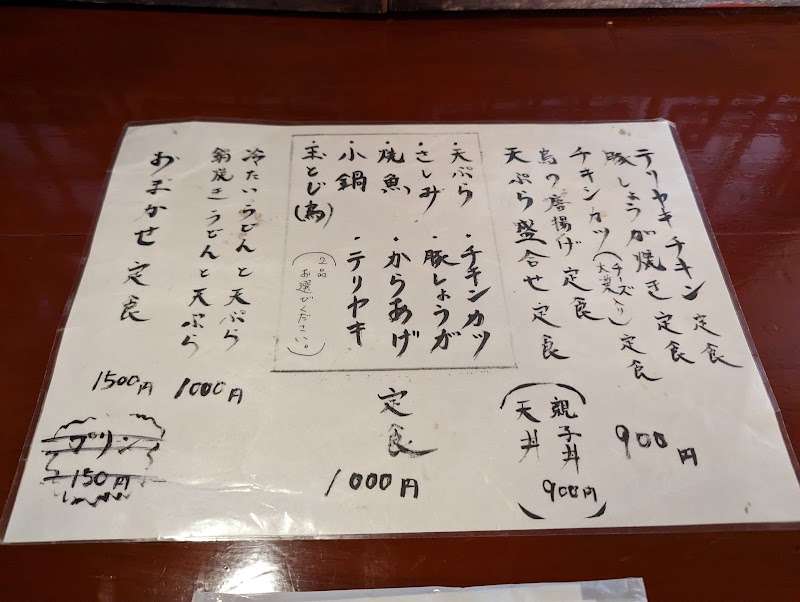 テリヤキチキン定食
豚しょうが焼き定食
チキンカツ(チーズ入り 大葉)定食
鳥の唐揚げ定食
天ぷら盛合せ定食
900円
親子丼
天丼
900円
・天ぷら
・さしみ
・焼魚
・小鍋
・玉とじ(鳥)
・チキンカツ
・豚しょうが
・からあげ
・テリヤキ
(2品お選びください。)
定食
1000円
冷たいうどんと天ぷら
鍋焼きうどんと天ぷら
1000円
おまかせ定食
1500円
プリン
150円